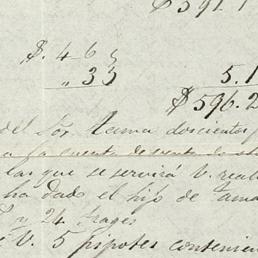 $591.1
$.4-65
„33 5.1
$596.2
del Sor. Tama doscientos
a la cuenta de venta de
las que se servirá V. reali
ha dado el hijo de Tama
y 24 trages
e V. 5 pipotes contenien